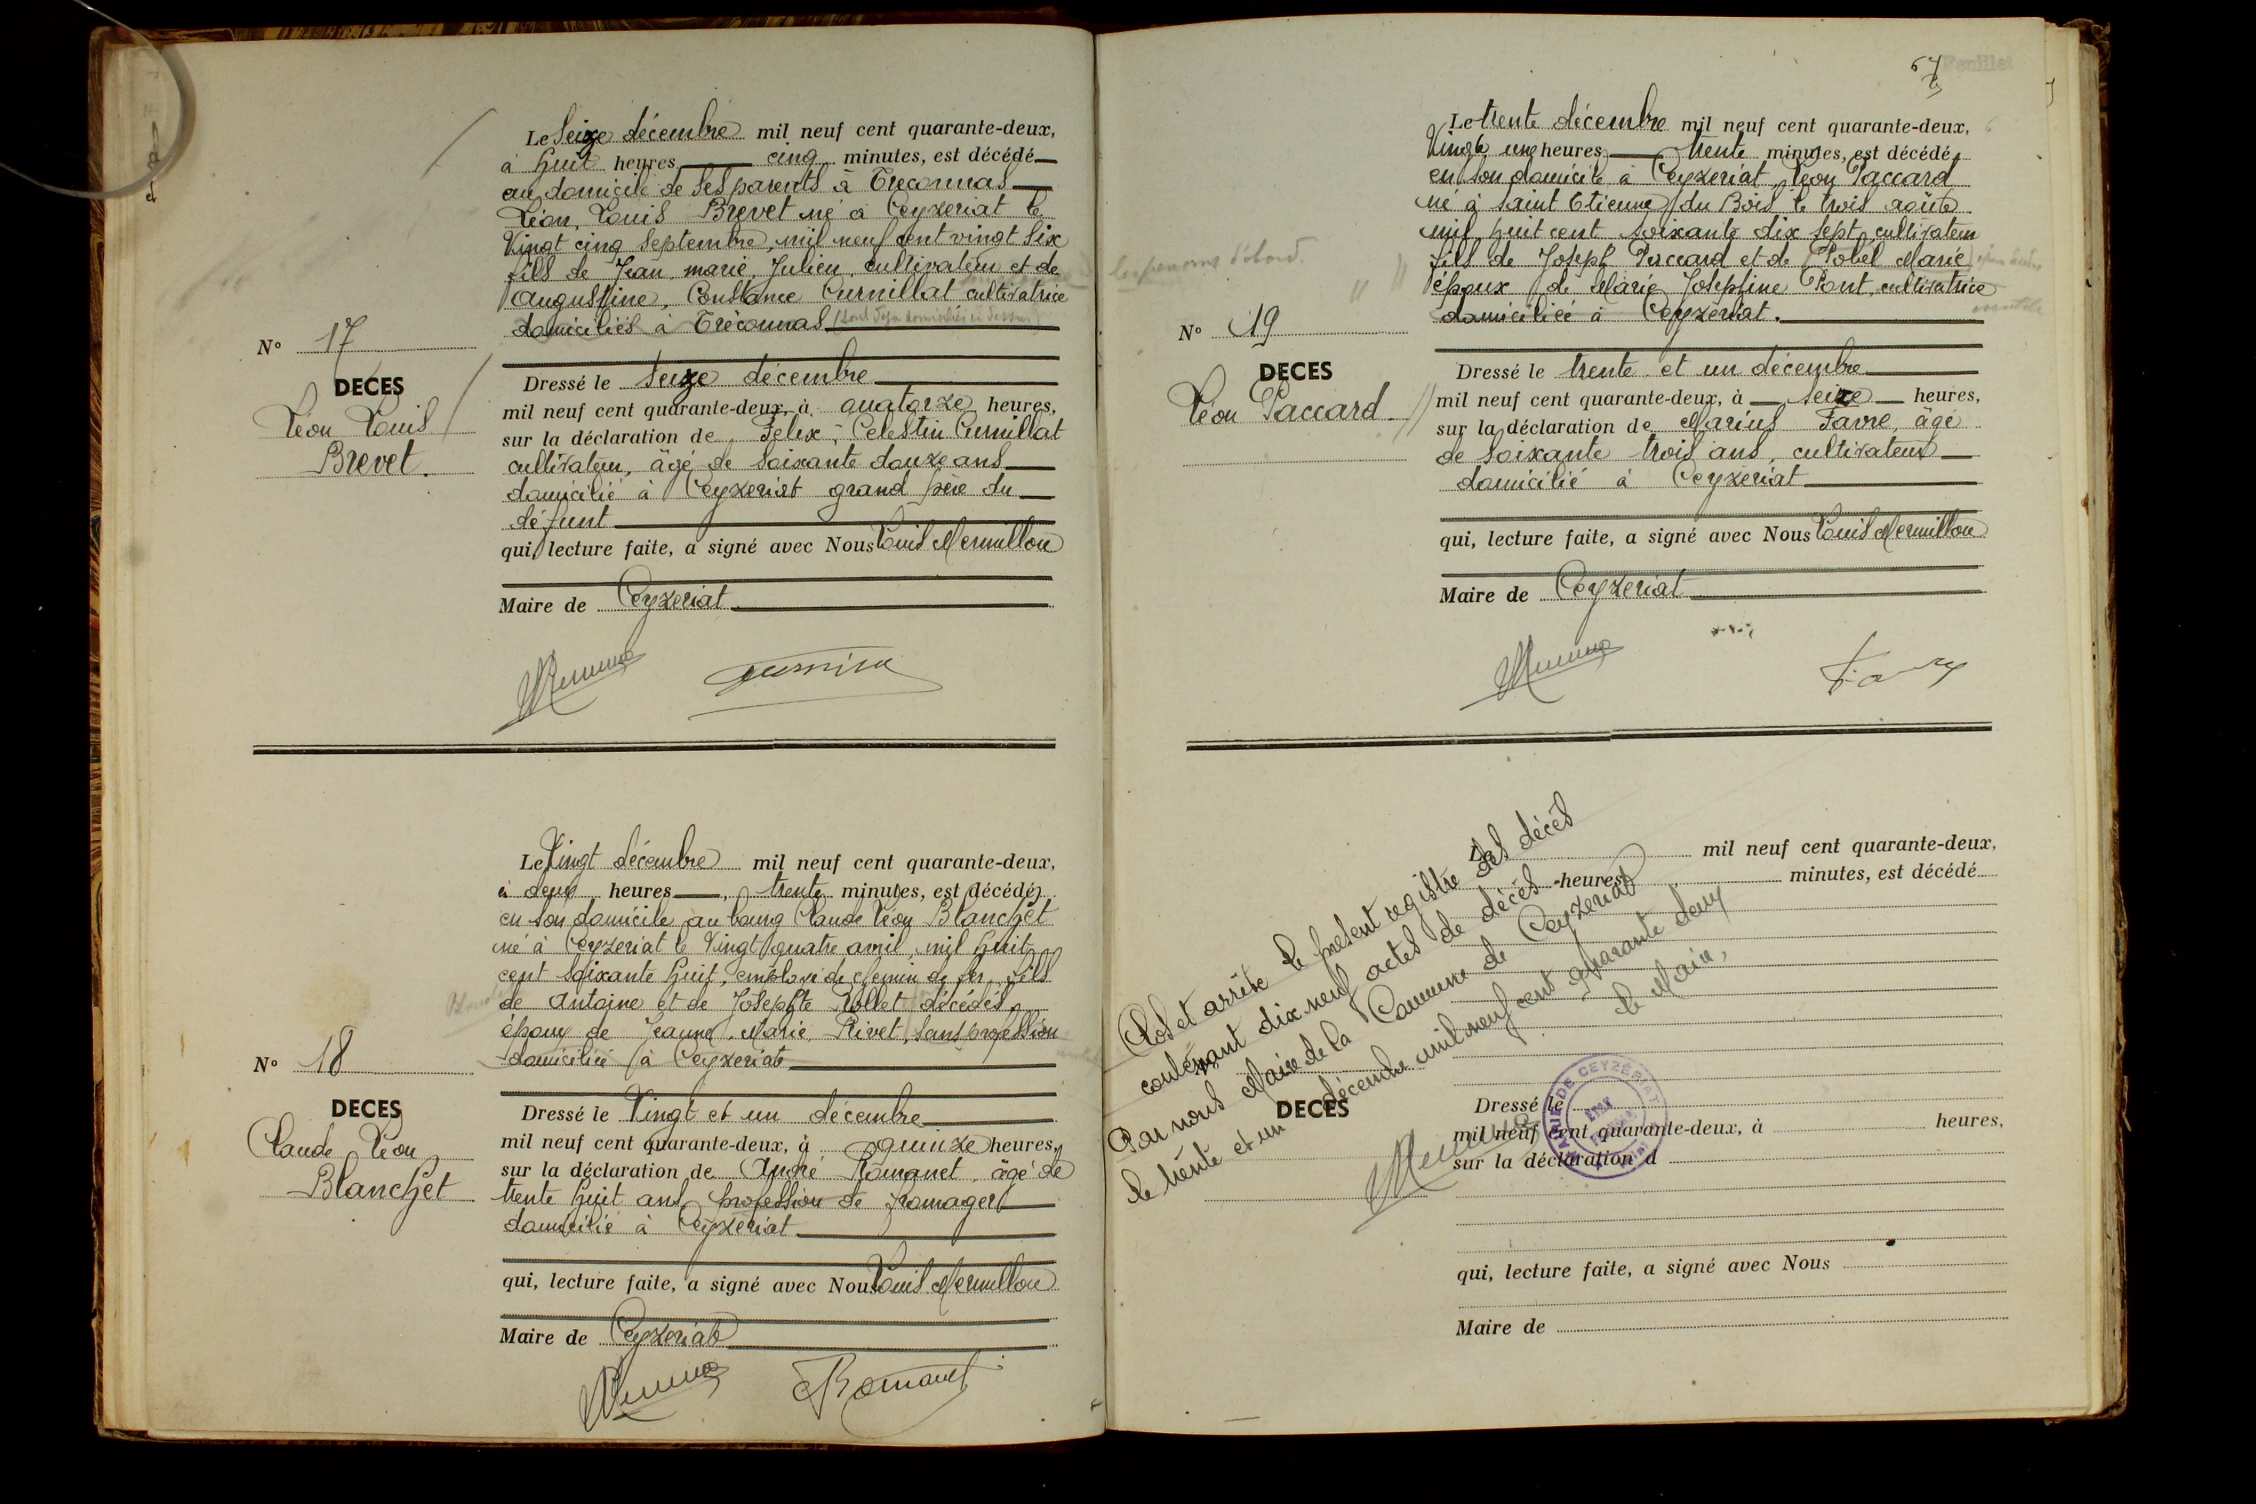 Le Seize décembre mil neuf cent quarante-deux,
à huit heures cinq minutes, est décédé
au domicile de ses parents à Tréconnas
Léon, Louis Brevet né à Ceyzeriat le
Vingt cinq Septembre, mil neuf cent vingt six
fils de Jean, marie, Julien, cultivateur et de
Augustine, Constance Curnillat cultivatrice
domiciliés à Tréconnas
N° 17
DECES
Léon Louis
Brevet.
Dressé le seize décembre
mil neuf cent quarante-deux, à quatorze heures,
sur la déclaration de Felix, Celestin Curnillat
cultivateur, âgé de soixante douze ans
domicilié à Ceyzeriat grand père du
défunt
qui, lecture faite, a signé avec Nous Louis Mermillon
Maire de Ceyzeriat
Le Vingt décembre mil neuf cent quarante-deux,
à deux heures, trente minutes, est décédé,
en son domicile au bourg Claude Léon Blanchet
né à Ceyzeriat le Vingt quatre avril, mil huit
cent soixante huit, employé de chemin de fer, fils
de Antoine et de Josephte Rollet décédés,
époux de Jeanne, Marie Rivet, sans profession
domiciliée à Ceyzeriat
N° 18
DECES
Claude Léon
Blanchet
Dressé le Vingt et un décembre
mil neuf cent quarante-deux, à quinze heures,
sur la déclaration de André Romanet, âgé de
trente huit ans, profession de fromager
domicilié à Ceyzeriat
qui, lecture faite, a signé avec Nous Louis Mermillon
Maire de Ceyzeriat
Romanet
67
Feuillet
Le trente décembre mil neuf cent quarante-deux,
Vingt une heures trente minutes, est décédé,
en son domicile à Ceyzeriat, Léon Paccard
né à Saint Etienne du Bois le trois août
mil huit cent soixante dix sept, cultivateur
fils de Joseph Paccard et de Pobel Marie
époux de Marie Josephine Pont, cultivatrice
domiciliée à Ceyzériat.
les prénoms d'abord.
N° 19
DECES
Léon Paccard
Dressé le trente et un décembre
mil neuf cent quarante-deux, à seize heures,
sur la déclaration de Marius Favre, âgé
de soixante trois ans, cultivateur
domicilié à Ceyzeriat
qui, lecture faite, a signé avec Nous Louis Mermillon
Maire de Ceyzeriat
Le mil neuf cent quarante-deux,
heures minutes, est décédé
Clos et arrêté le présent registre des décès
contenant dix neuf actes de décès
Par nous Maire de la Commune de Ceyzeriat
le trente et un décembre mil neuf cent quarante deux
le Maire,
MAIRIE DE CEYZÉRIAT
DECES
Dressé le
mil neuf cent quarante-deux, à heures,
sur la déclaration d
qui, lecture faite, a signé avec Nous
Maire de